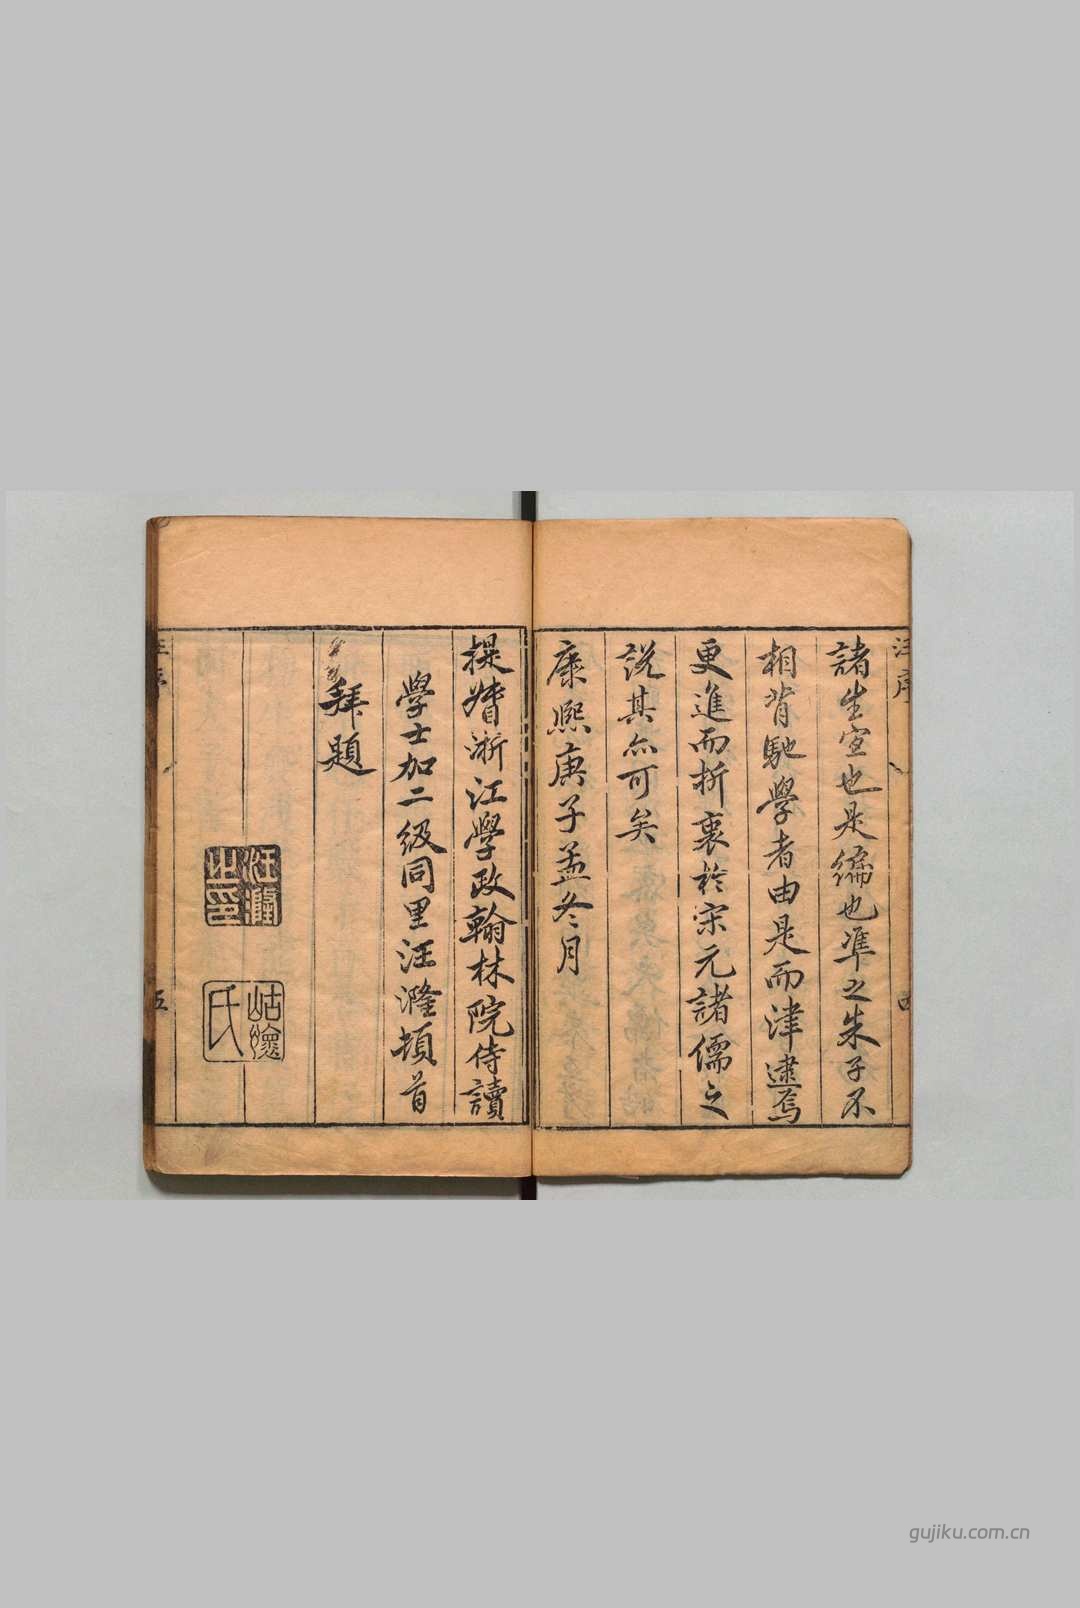 汪序
諸生宣也是編也準之朱子不
相背馳學者由是而津逮焉
更進而折衷於宋元諸儒之
說其亦可矣
康熙庚子孟冬月
提督浙江學政翰林院侍讀
學士加二級同里汪漋頓首
拜題
汪漋之印
五
gujiku.com.cn